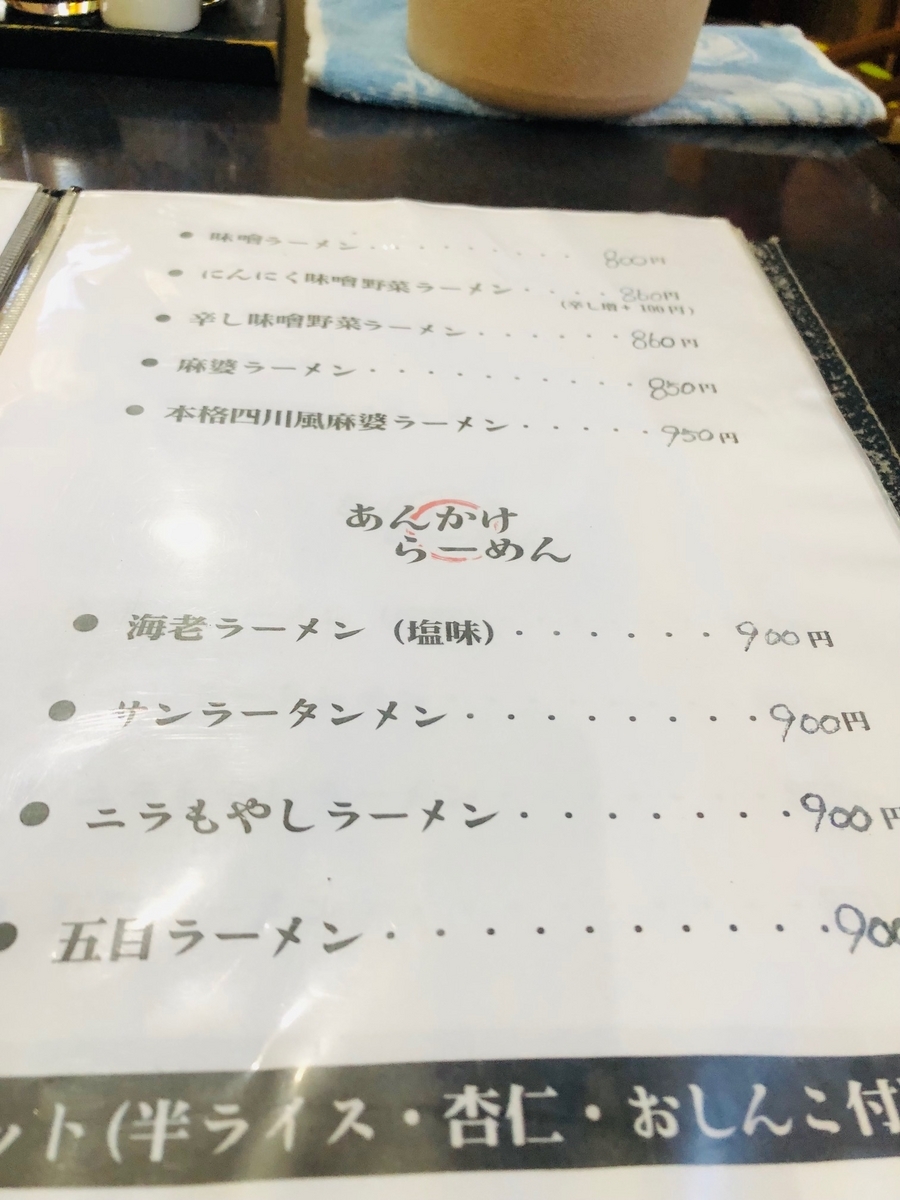 ● 味噌ラーメン・・・・・・・・・ 800円
● にんにく味噌野菜ラーメン・・・・860円
(辛し増+100円)
● 辛し味噌野菜ラーメン・・・・・・860円
● 麻婆ラーメン・・・・・・・・・・850円
● 本格四川風麻婆ラーメン・・・・・950円
あんかけ
らーめん
● 海老ラーメン(塩味)・・・・・・900円
● サンラータンメン・・・・・・・・900円
● ニラもやしラーメン・・・・・・・900円
● 五目ラーメン・・・・・・・・・・900
ット(半ライス・杏仁・おしんこ付